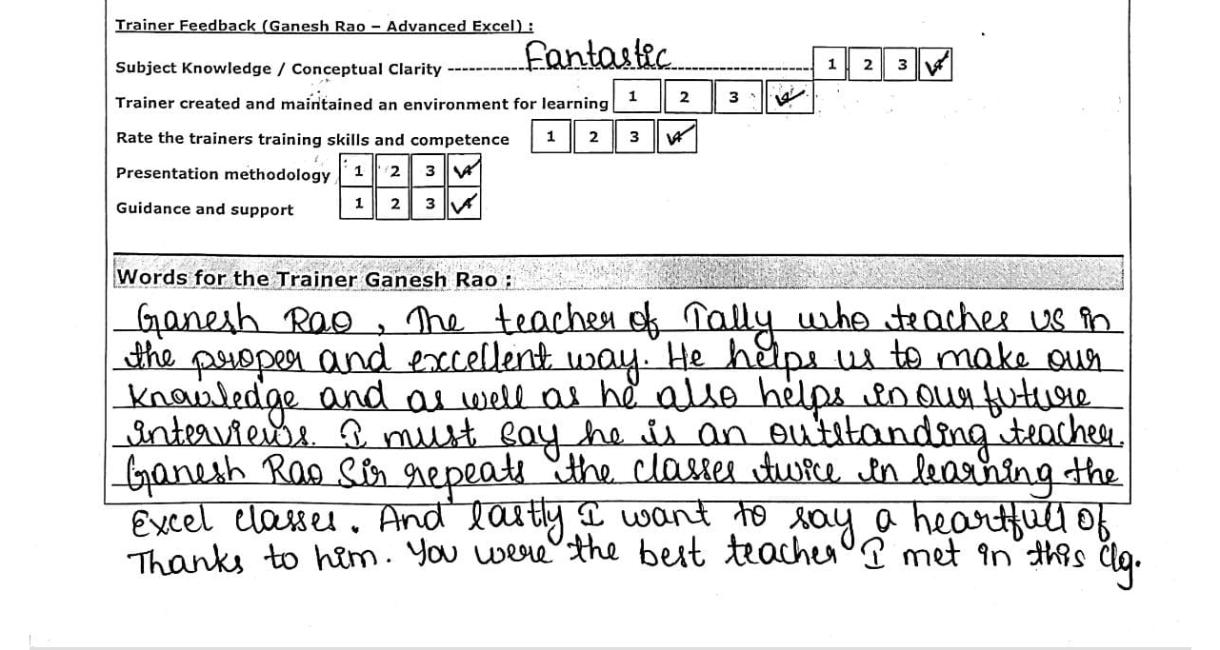 Trainer Feedback (Ganesh Rao – Advanced Excel) :
Subject Knowledge / Conceptual Clarity ---------- Fantastic ---------- 1 2 3
Trainer created and maintained an environment for learning 1 2 3
Rate the trainers training skills and competence 1 2 3
Presentation methodology 1 2 3
Guidance and support 1 2 3
Words for the Trainer Ganesh Rao :
Ganesh Rao , The teacher of Tally who teaches us in
the proper and excellent way. He helps us to make our
knowledge and as well as he also helps in our future
interviews. I must say he is an outstanding teacher.
Ganesh Rao Sir repeats the classes twice in learning the
Excel classes. And lastly I want to say a heartfull of
Thanks to him. You were the best teacher I met in this clg.